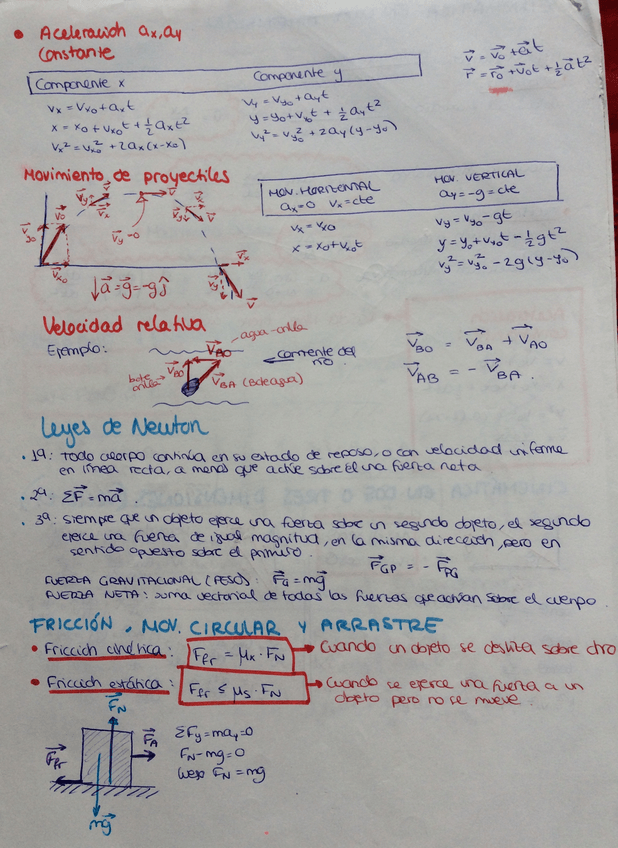 • Aceleración ax, ay
constante
v⃗ = v⃗₀ + a⃗t
r⃗ = r⃗₀ + v⃗₀t + ½a⃗t²
Componente x Componente y
vx = vx₀ + axt
x = x₀ + vx₀t + ½axt²
vx² = vx₀² + 2ax(x-x₀)
vy = vy₀ + ayt
y = y₀ + vy₀t + ½ayt²
vy² = vy₀² + 2ay(y-y₀)
Movimiento de proyectiles
MOV. HORIZONTAL MOV. VERTICAL
ax=0 vx=cte ay=-g=cte
vx = vx₀
x = x₀ + vx₀t
vy = vy₀ - gt
y = y₀ + vy₀t - ½gt²
vy² = vy₀² - 2g(y-y₀)
v⃗y₀ v⃗₀ v⃗y v⃗ v⃗x v⃗ v⃗x v⃗y v⃗
v⃗y=0
v⃗x₀ v⃗x
v⃗y v⃗
a⃗ = g⃗ = -gĵ
Velocidad relativa
Ejemplo:
agua-orilla
V⃗AO
corriente del
río
V⃗BO
bote
orilla
V⃗BA (Bote agua)
V⃗BO = V⃗BA + V⃗AO
V⃗AB = - V⃗BA.
Leyes de Newton
. 1ª: Todo cuerpo continúa en su estado de reposo, o con velocidad uniforme
en línea recta, a menos que actúe sobre él una fuerza neta.
. 2ª: ΣF⃗ = ma⃗.
. 3ª: siempre que un objeto ejerce una fuerza sobre un segundo objeto, el segundo
ejerce una fuerza de igual magnitud, en la misma dirección, pero en
sentido opuesto sobre el primero.
F⃗GP = - F⃗PG
FUERZA GRAVITACIONAL (PESO): F⃗G = mg⃗
FUERZA NETA: suma vectorial de todas las fuerzas que actúan sobre el cuerpo.
FRICCIÓN, MOV. CIRCULAR Y ARRASTRE
• Fricción cinética: Ffr = μk · FN → Cuando un objeto se desliza sobre otro
• Fricción estática: Ffr ≤ μs · FN → Cuando se ejerce una fuerza a un
objeto pero no se mueve.
F⃗N
F⃗A
F⃗fr
mg⃗
ΣFy = may = 0
FN - mg = 0
luego FN = mg